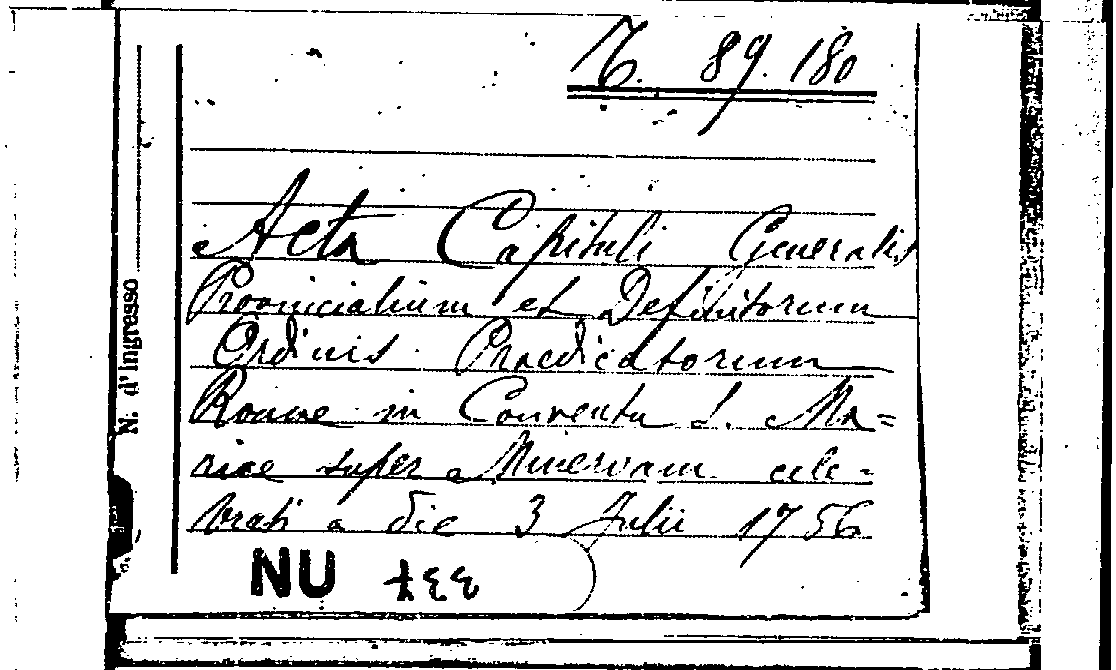 89. 180
Acta Capituli Generalis
Provincialium et Definitorum
Ordinis Praedicatorum
Romae in Conventu S. Ma=
riae super Minervam cele=
brati a die 3 Julii 1756
NU
N. d'Ingresso